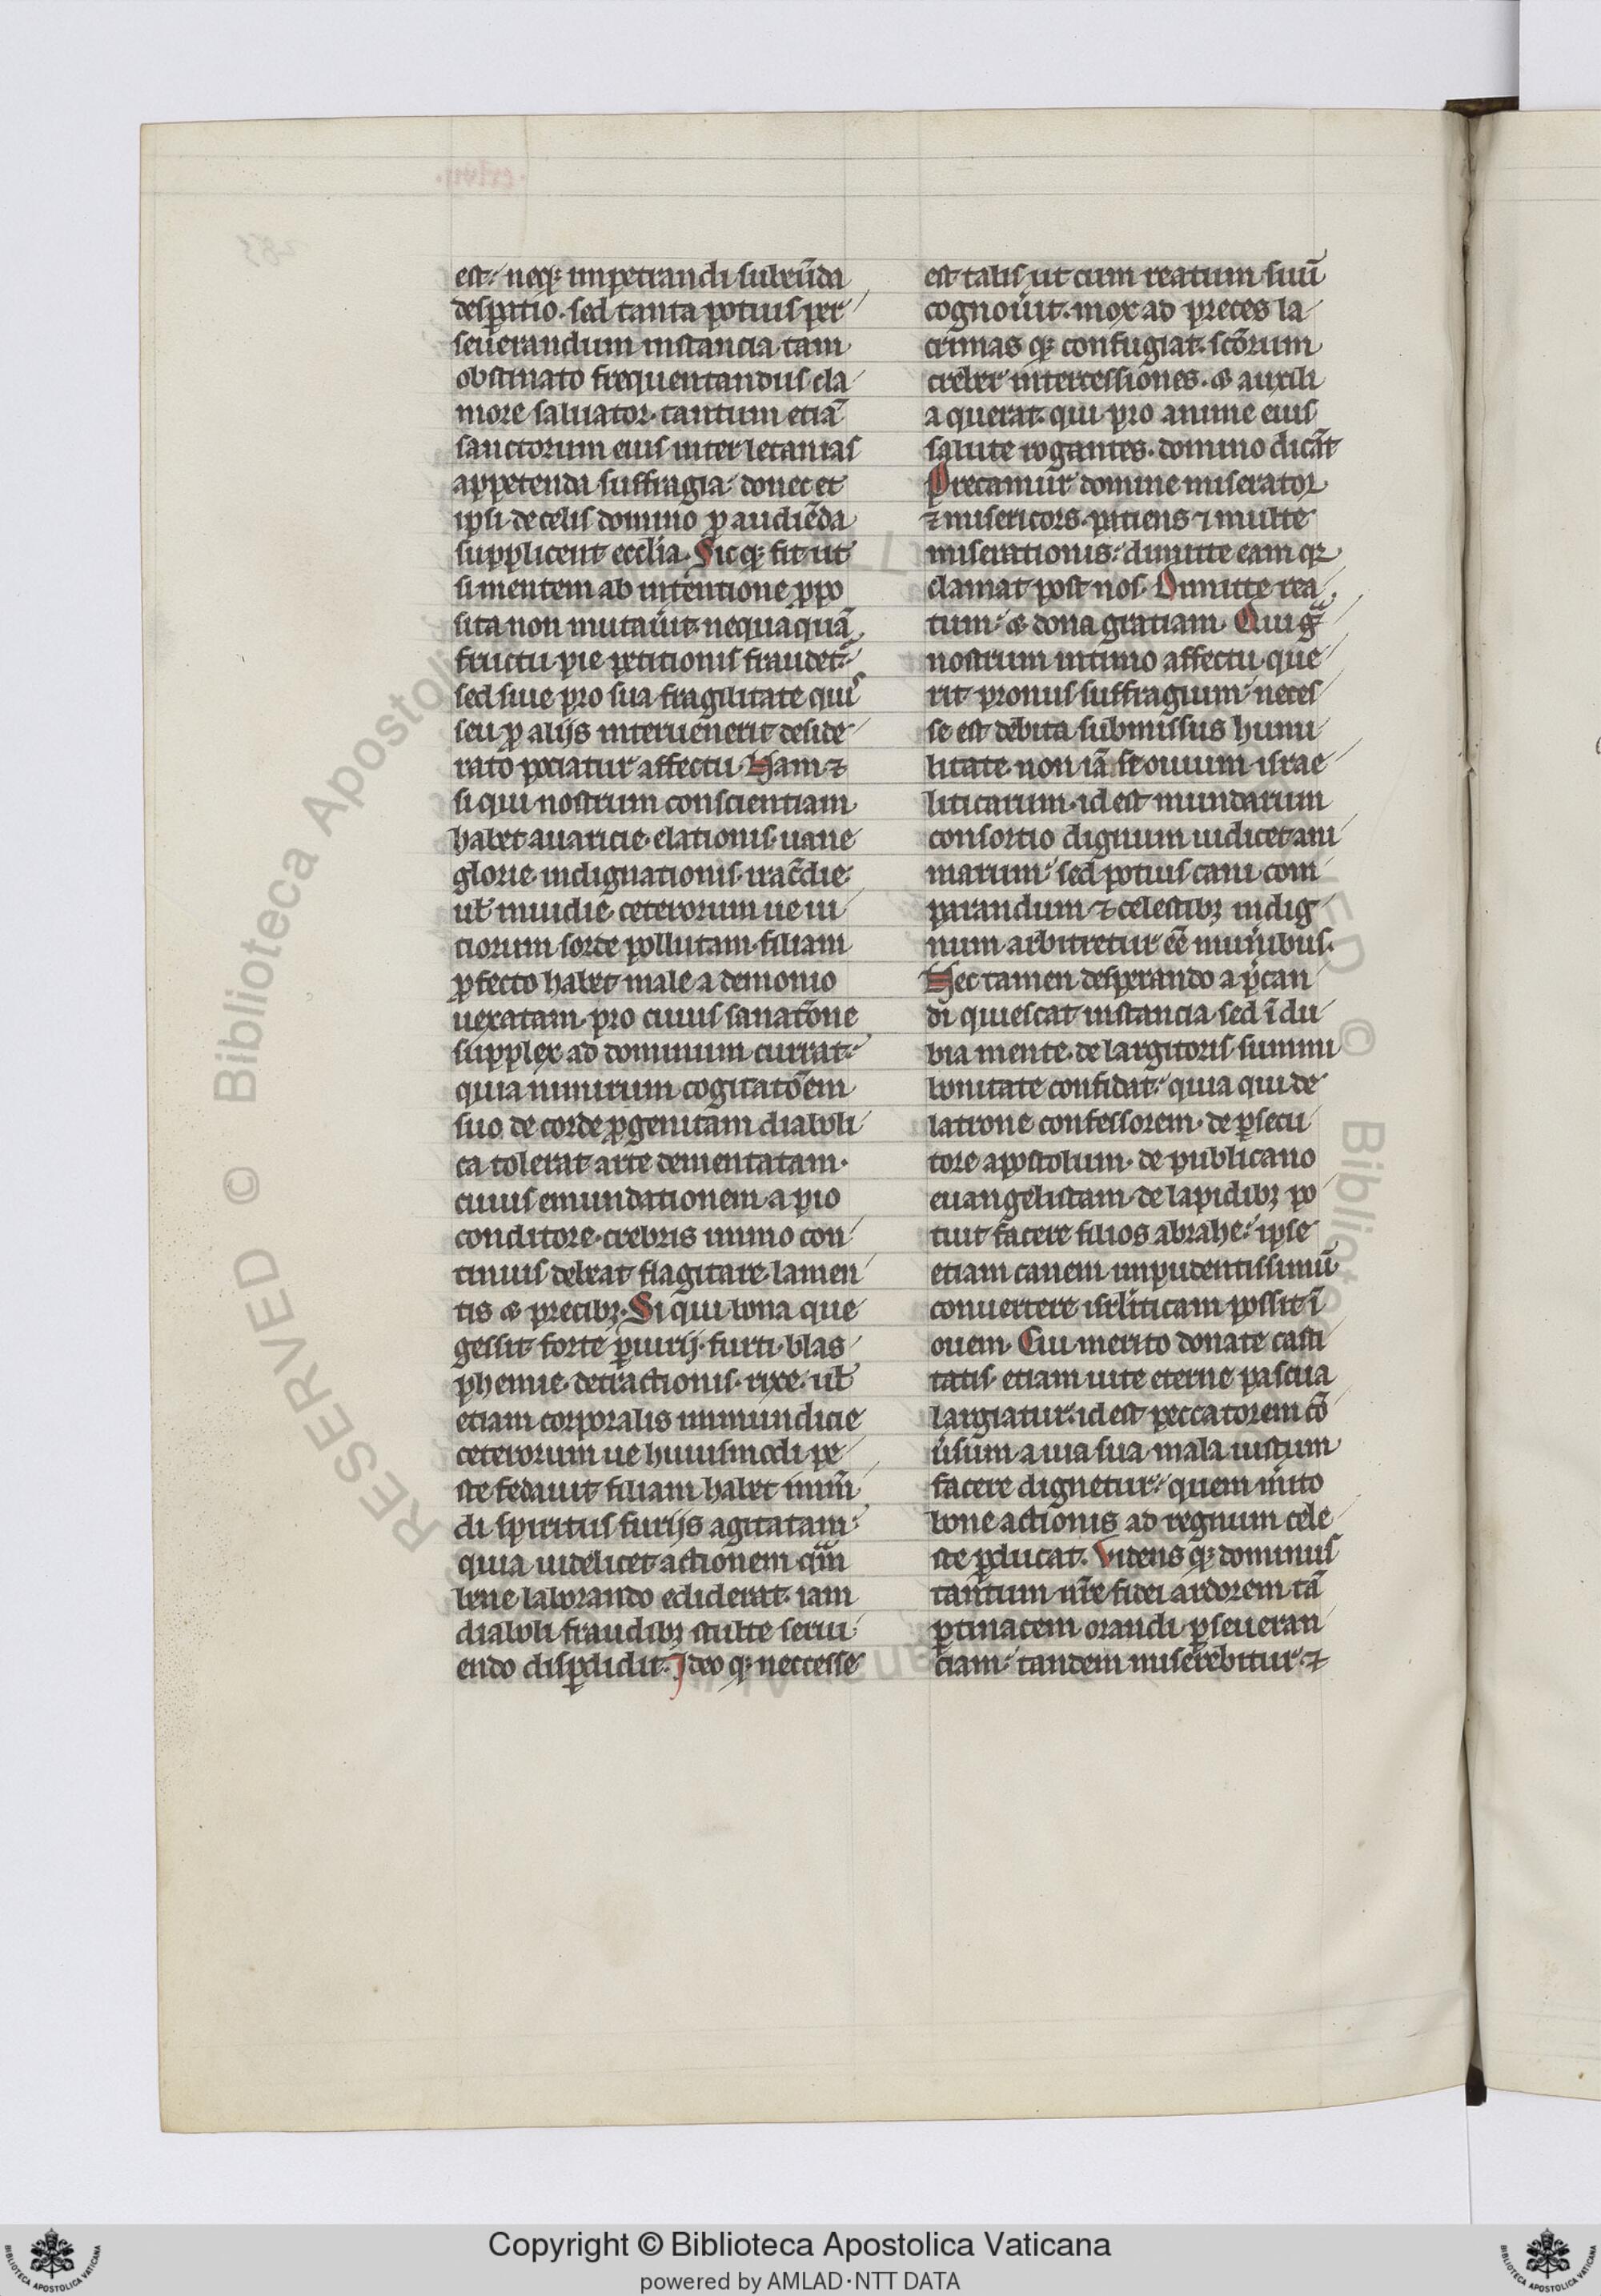 est· neq; impetrandi subeūda
desperatio. sed tanta potius per
seuerandum instancia tam
obstinato frequentandus cla
more saluator· tantum etiā
sanctorum eius inter letanias
appetenda suffragia· donec et
ipsi de celis domino p audiēda
supplicent ecclīa. Sicq; fit ut
si mentem ab intentione ppo
sita non mutauīt· nequaquā
fructu pie petitionis fraudet·
sed siue pro sua fragilitate quis
seu p alijs interuenerit deside
rato pociatur affectu· Nam ⁊
si qui nostrum conscientiam
habet auaricie· elationis· uane
glorie· indignationis· iracūdie·
ul' inuidie· ceterorum ue ui
tiorum sorde pollutam· filiam
pfecto habet male a demonio
uexatam· pro cuius sanatōne
supplex ad dominum currat·
quia nimirum cogitatōem
suo de corde pgenitam diaboli
ca tolerat arte dementatam·
cuius emundationem· a pio
conditore· crebris immo con
tinuis debeat flagitare· lamen
tis & precibȝ· Si qui bona que
gessit forte piurij· furti· blas
phemie· detractionis· rixe· ul'
etiam corporalis immundicie
ceterorum ue huiusmodi pe
ste fedauit filiam habet inmū
di spiritus furijs agitatam·
quia uidelicet actionem qm̄
bene laborando ediderat· iam
diaboli fraudibȝ stulte serui
endo dispdidit· Ideo q; neccesse
est talis ut cum reatum suū
cognouīt· mox ad preces la
crimas q; confugiat· scōrum
crebet intercessiones· & auxili
a querat· qui pro anime eius
salute rogantes· domino dicāt
Precamur domine miserator
⁊ misericors· patiens ⁊ multe
miserationis· dimitte eam qr
clamat post nos· Dimitte rea
tum· & dona gratiam· Qui g̃
nostrum intimo affectu que
rit pronus suffragium· neces
se est debita submissus humi
litate· non iā se ouium israe
liticarum· id est mundarum
consortio dignum iudicet ani
marum· sed potius cani com
parandum ⁊ celestibȝ indig
num arbitretur eē muīibus·
Nec tamen desperando a pcan
di quiescat instancia· sed īdu
bia mente· de largitoris summi
bonitate confidat· quia qui de
latrone confessorem· de psecu
tore apostolum· de publicano
euangelistam· de lapidibȝ po
tuit facere filios abrahe· ipse
etiam canem impudentissimū
conuertere isrl'iticam possit ī
ouem· Cui merito donate casti
tatis· etiam uite eterne pascua
largiatur· id est peccatorem cō
uīsum· a uia sua mala iustum
facere dignetur· quem mīto
bone actionis ad regnum cele
ste pducat· Videns q; dominus
tantum nr̄e fidei ardorem tā
ptinacem orandi pseueran
ciam· tandem miserebitur ⁊
Copyright © Biblioteca Apostolica Vaticana
powered by AMLAD·NTT DATA